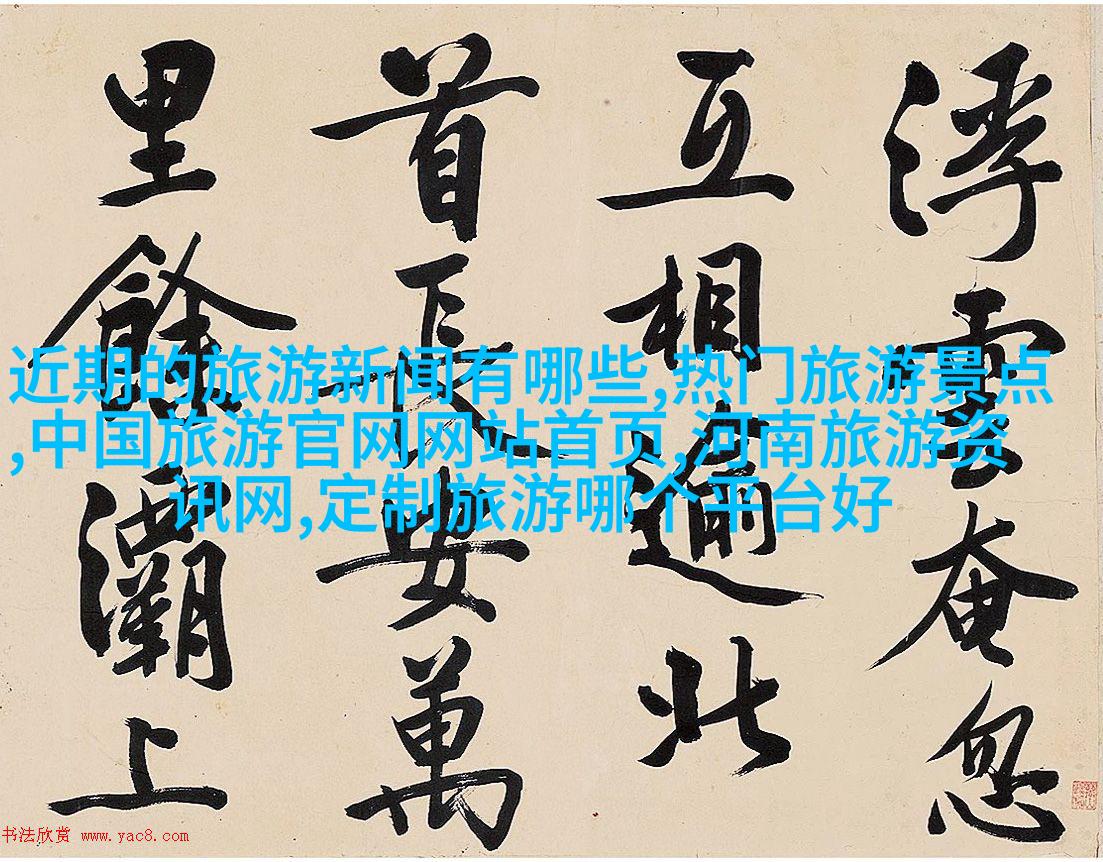 浮雲奄忽
互相逾北
首長安萬
里餘灞上
近期的旅游新闻有哪些,热门旅游景点
,中国旅游官网网站首页,河南旅游资
讯网,定制旅游哪个平台好
书法欣赏 www.yac8.com